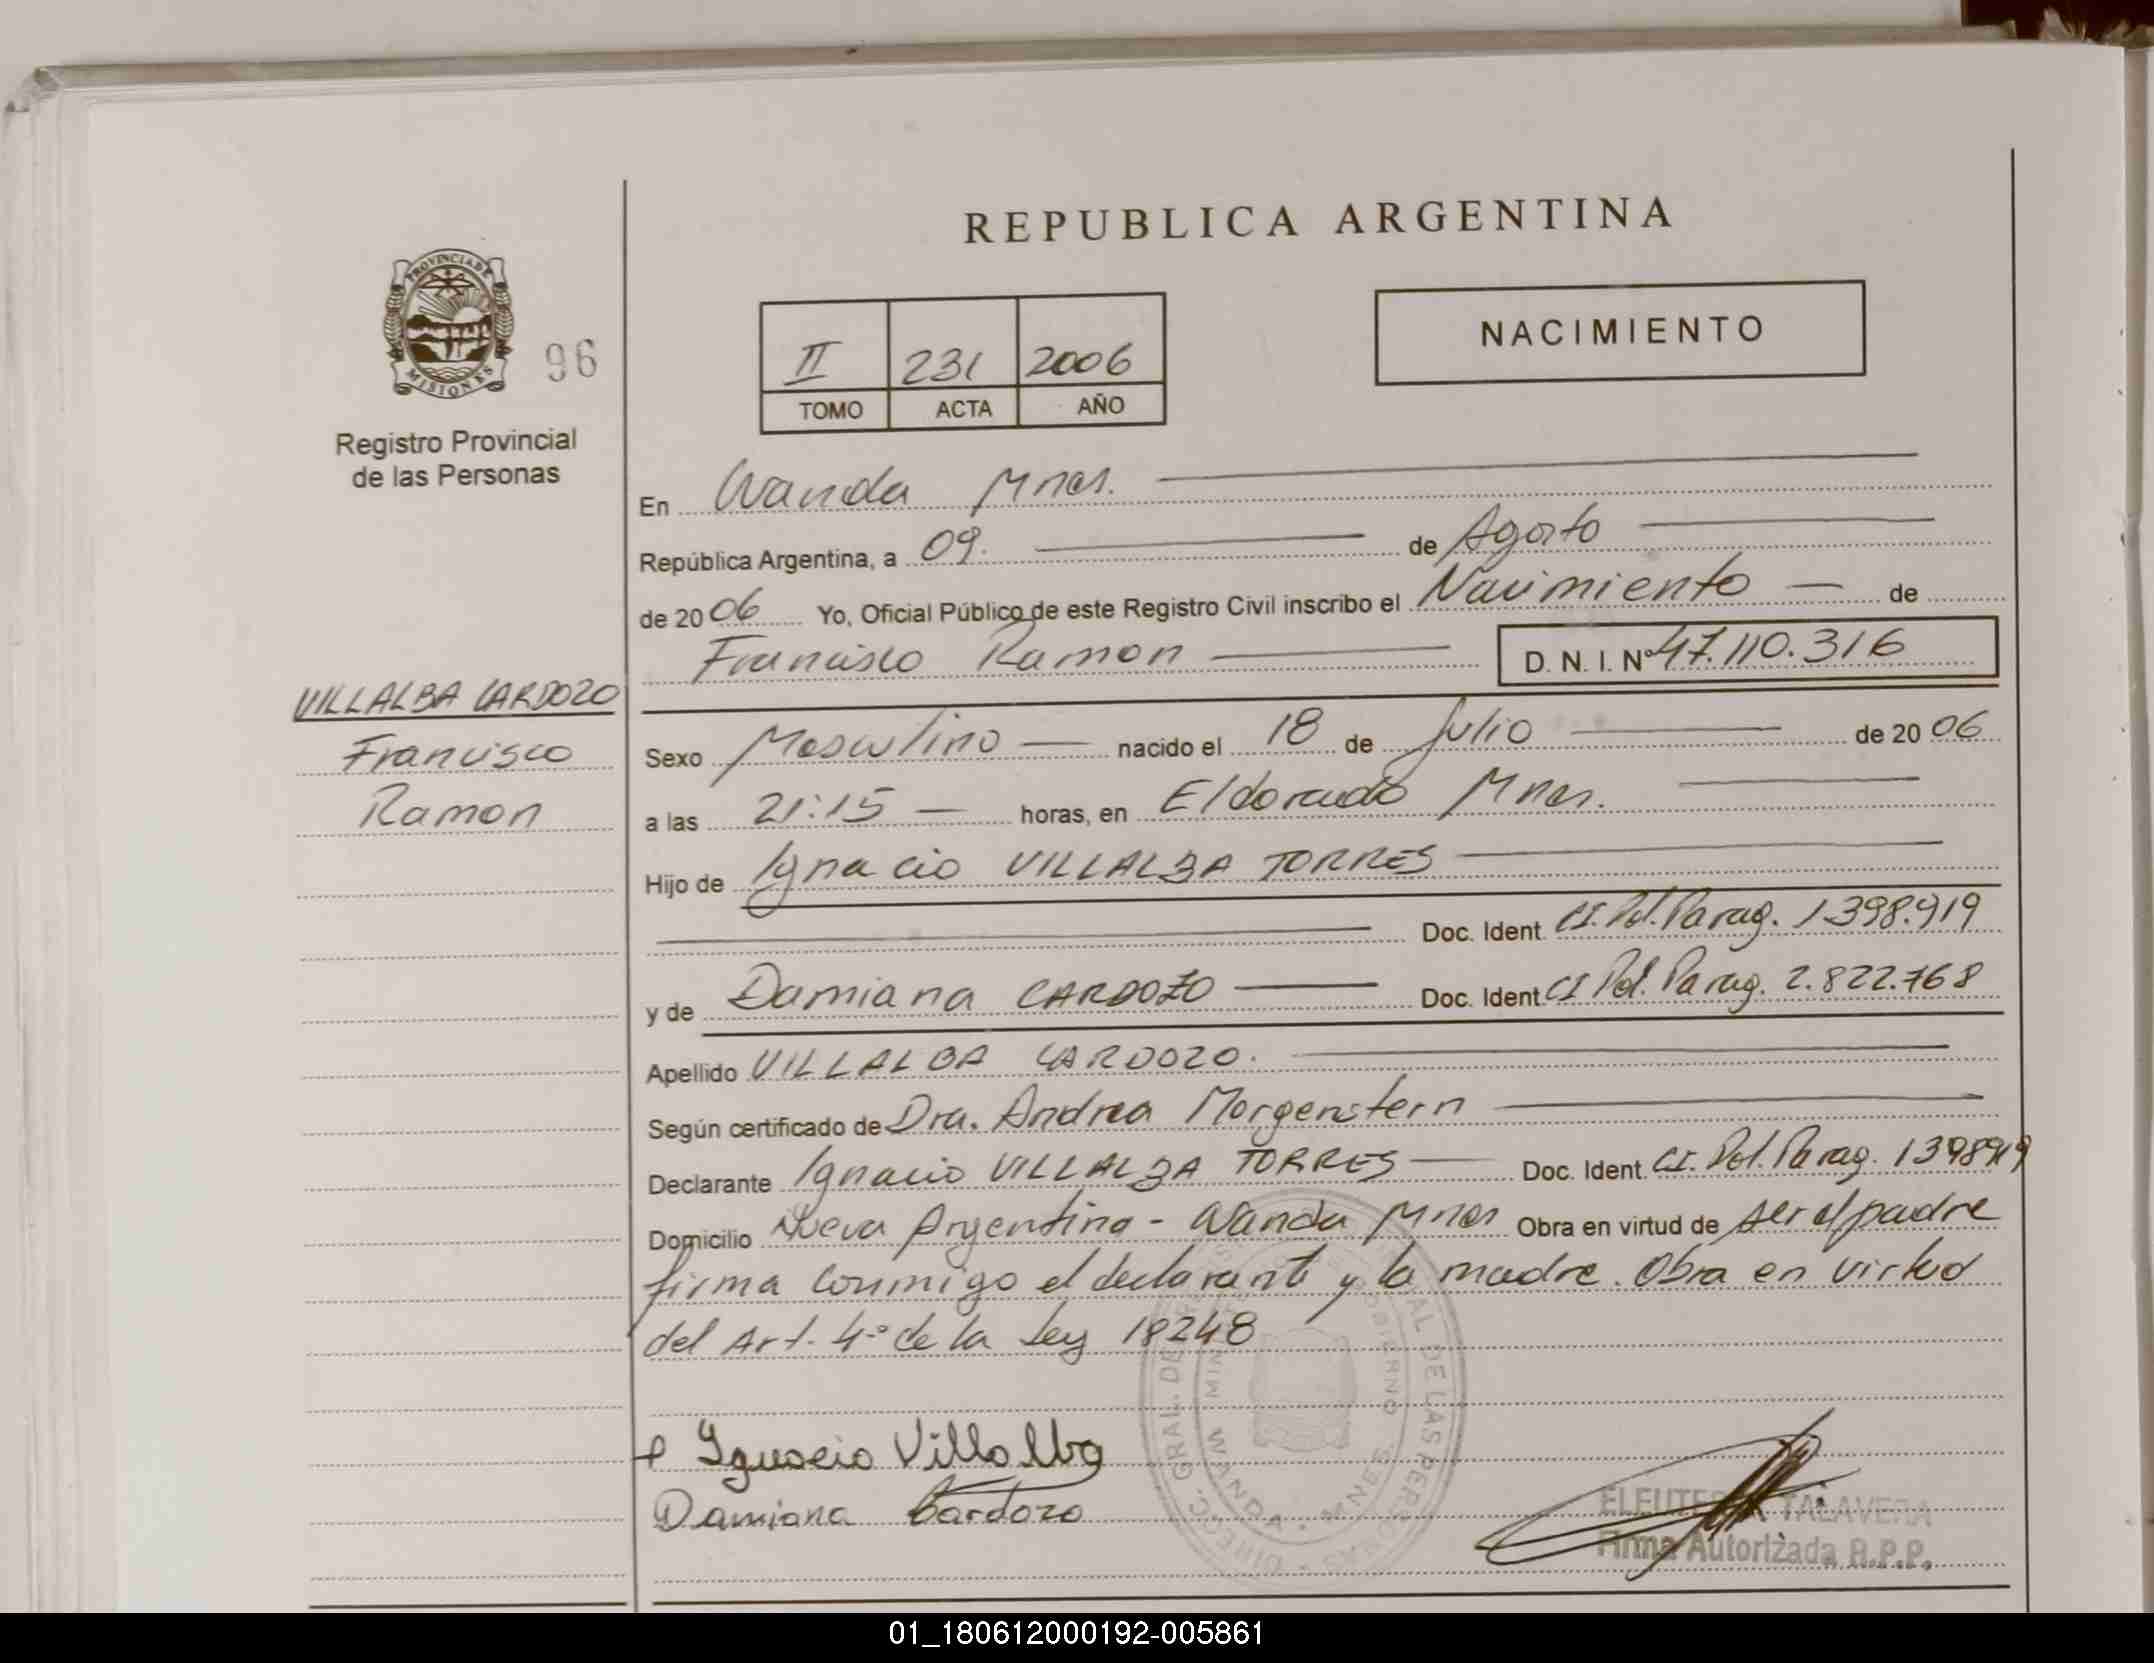 REPUBLICA ARGENTINA
PROVINCIA DE
MISIONES
96
II 231 2006
TOMO ACTA AÑO
NACIMIENTO
Registro Provincial
de las Personas
En Wanda Mnes.
República Argentina, a 09. de Agosto
de 2006 Yo, Oficial Público de este Registro Civil inscribo el Nacimiento de
Francisco Ramon D. N. I. Nº 47.110.316
VILLALBA CARDOZO
Francisco
Ramon
Sexo Masculino nacido el 18 de Julio de 2006
a las 21:15 horas, en Eldorado Mnes.
Hijo de Ignacio VILLALBA TORRES
Doc. Ident. CI. Pol. Parag. 1.398.919
y de Damiana CARDOZO Doc. Ident. CI Pol. Parag. 2.822.768
Apellido VILLALBA CARDOZO.
Según certificado de Dra. Andrea Morgenstern
Declarante Ignacio VILLALBA TORRES Doc. Ident. CI. Pol. Parag. 1398919
Domicilio Nueva Argentina - Wanda Mnes Obra en virtud de ser el padre
firma conmigo el declarante y la madre. Obra en virtud
del Art. 4º de la Ley 18248
Ignacio Villalba
Damiana Cardozo
DIRECC. GRAL. DE LAS PERSONAS
WANDA • MNES.
TALAVERA
Firma Autorizada R.P.P.
01_180612000192-005861